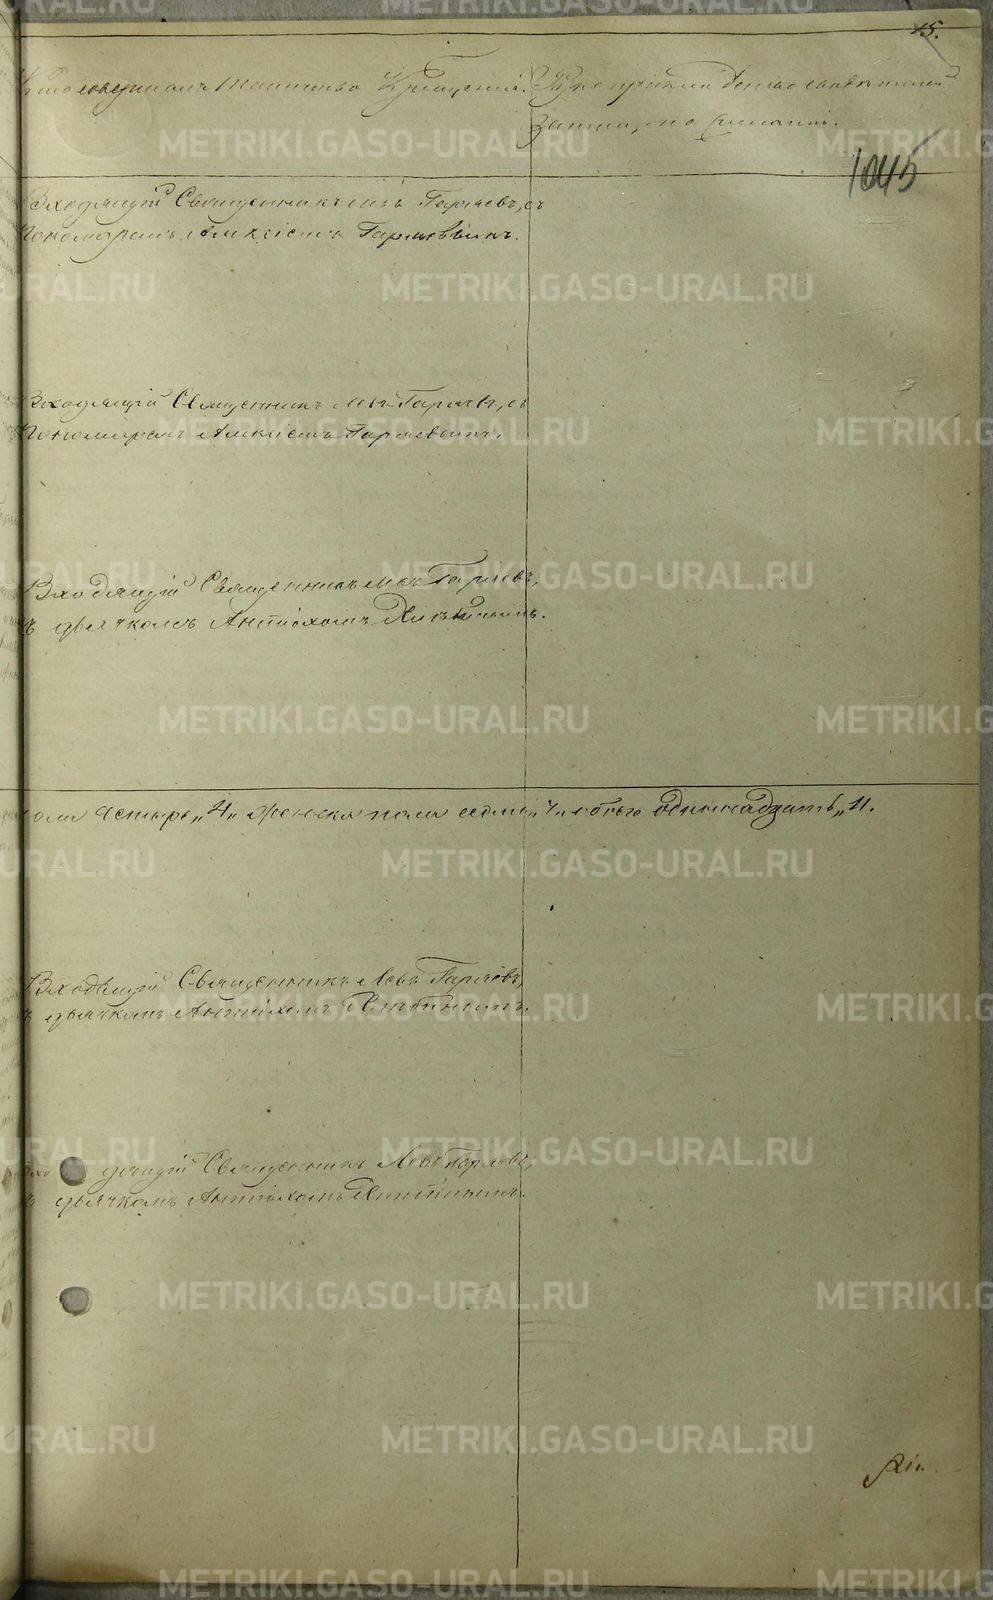 15.
Кто совершалъ таинство Крещенія.
Рукоприкладство свидѣтелей
записи, по желанію.
1045
Входящій Священникъ Левъ Гаряевъ, съ
Пономаремъ Алексіемъ Гаряевымъ.
Входящій Священникъ Левъ Гаряевъ, съ
Пономаремъ Алексіемъ Гаряевымъ.
Входящій Священникъ Левъ Гаряевъ,
съ дьячкомъ Антіохомъ
пола четыре „4„ женска пола седмь „7„ обоего одиннадцать „11.
Входящій Священникъ Левъ Гаряевъ,
съ дьячкомъ Антіохомъ
Священникъ Левъ Гаряевъ,
съ дьячкомъ Антіохомъ
METRIKI.GASO-URAL.RU